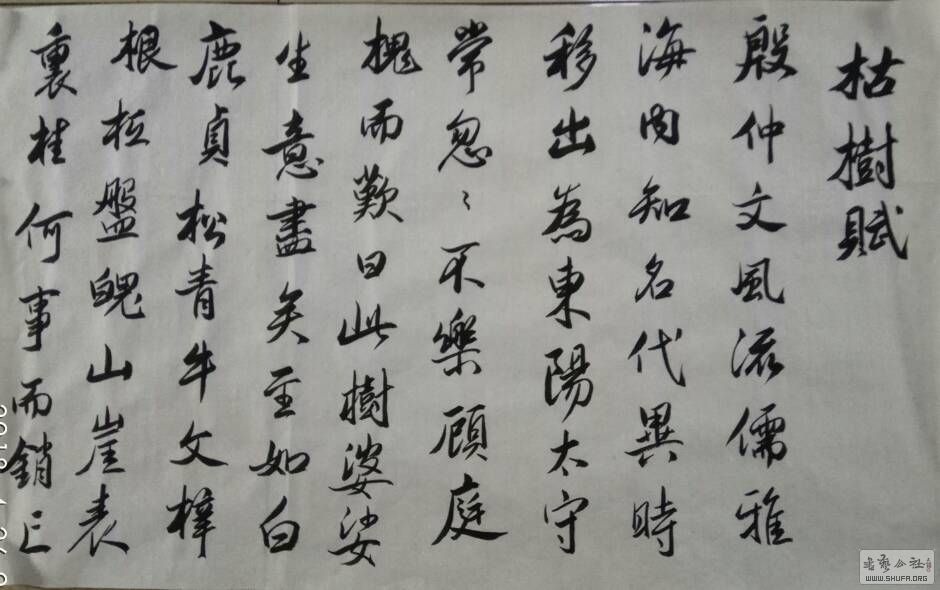 枯樹賦
殷仲文風流儒雅
海內知名代異時
移出為東陽太守
常忽〻不樂顧庭
槐而歎曰此樹婆娑
生意盡矣至如白
鹿貞松青牛文梓
根柢盤魄山崖表
裏桂何事而銷亡
書艺公社
WWW.SHUFA.ORG